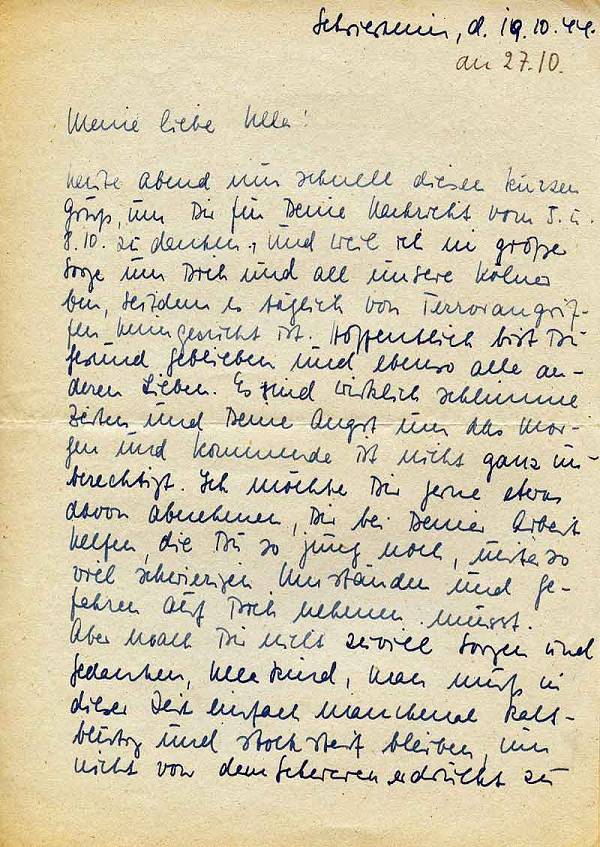 d. 19.10.44.
an 27.10.
Meine liebe Ulla!
heute Abend nur schnell diesen kurzen
Gruß, um Dir für Deine Nachricht vom 5. u.
8.10. zu danken, und weil ich in großer
Sorge um Dich und all unsere Kölner
bin, seitdem es täglich von Terrorangrif-
fen heimgesucht ist. Hoffentlich bist Du
gesund geblieben und ebenso alle an-
deren Lieben. Es sind wirklich schlimme
Zeiten und Deine Angst um das Mor-
gen und Kommende ist nicht ganz un-
berechtigt. Ich möchte Dir gerne etwas
davon abnehmen, Dir bei Deiner Arbeit
helfen, die Du so jung noch, unter so
viel schwierigen Umständen und Ge-
fahren auf Dich nehmen musst.
Aber mach Dir nicht zuviel Sorgen und
Gedanken, Ullakind, man muß in
dieser Zeit einfach manchmal kalt-
blütig und stocksteif bleiben, um
nicht von dem Schweren erdrückt zu